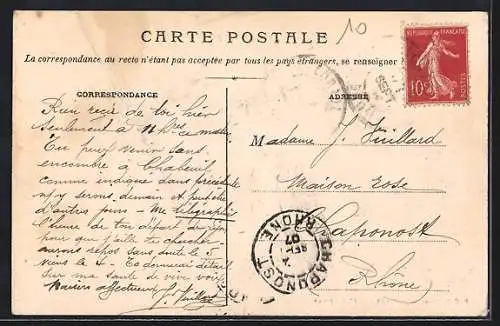 10
CARTE POSTALE
La correspondance au recto n'étant pas acceptée par tous les pays étrangers, se renseigner
REPUBLIQUE FRANÇAISE
10c
POSTES
CORRESPONDANCE
ADRESSE
Rien reçu de toi hier
seulement à 11 hres ce matin
Tu peux venir sans
encombre à Chabeuil
comme indiqué dans précédente
n/y serons demain et peut être
d'autres jours - Me télégraphier
l'heure de ton départ de
pour que j'aille te chercher
serons repos sans doute le 3
viens le 4 - Te donnerai détail
sur ma santé de vive voix
Baisers affectueux J. Juillard
Madame J. Juillard
Maison Rose
Chaponost
Rhône
CHAPONOST
RHONE
SEPT
07